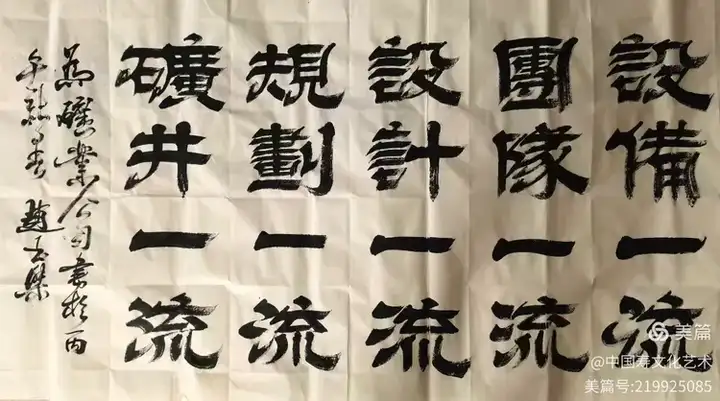 設備一流
團隊一流
設計一流
規劃一流
礦井一流
為礦業公司書於丙
午新春 趙玉樂
美篇
@中国寿文化艺术
美篇号:219925085